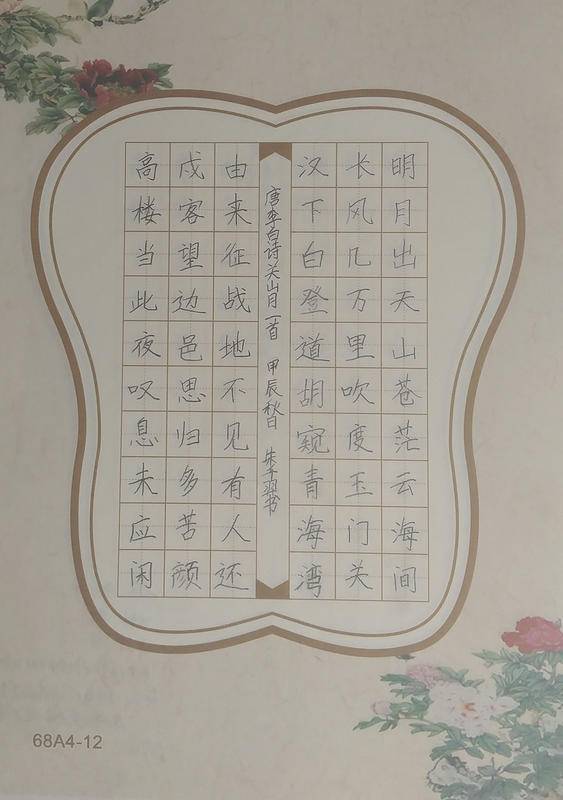 明月出天山苍茫云海间
长风几万里吹度玉门关
汉下白登道胡窥青海湾
唐李白诗关山月一首 甲辰秋日 朱子羽书
由来征战地不见有人还
戍客望边邑思归多苦颜
高楼当此夜叹息未应闲
68A4-12